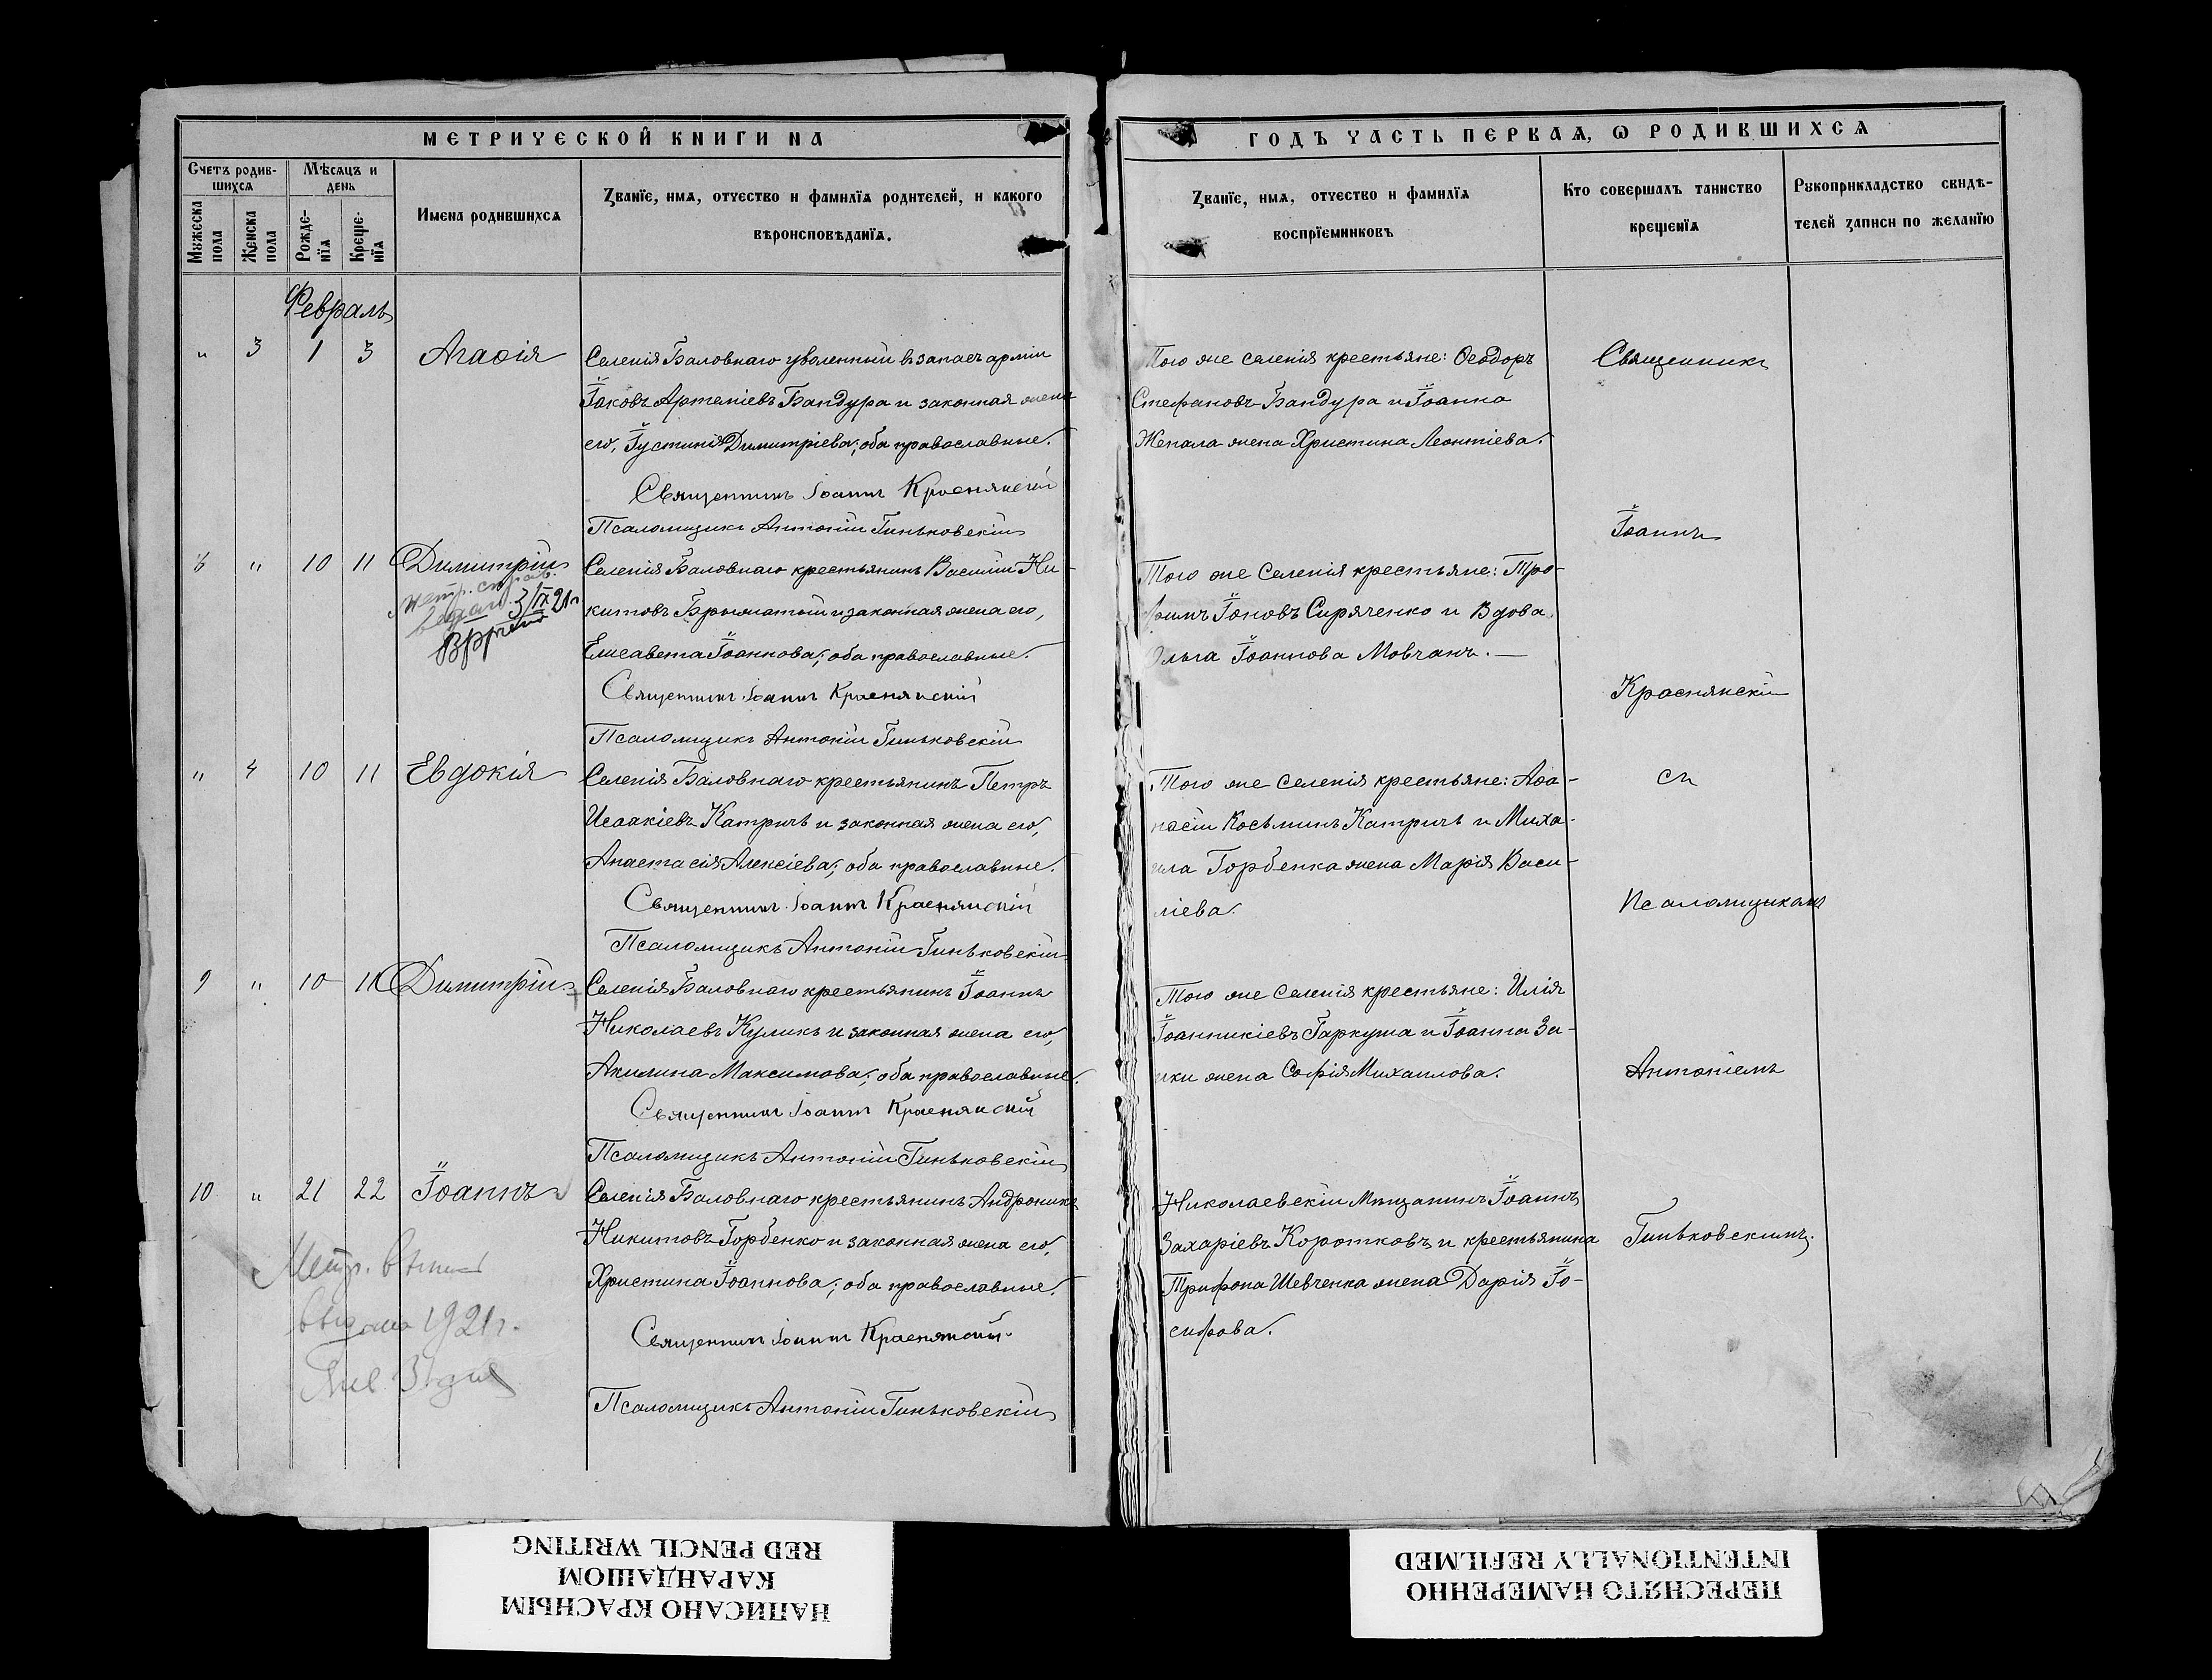 МЕТРИЧЕСКОЙ КНИГИ НА
ГОДЪ ЧАСТЬ ПЕРВАЯ, Ѡ РОДИВШИХСЯ
Счетъ родив-
шихся
Мѣсяцъ и
день
Мужеска
пола
Женска
пола
Рожде-
нїя
Креще-
нїя
Имена родившихся
Званїе, имя, отчество и фамилїя родителей, и какого
вѣроисповѣданїя.
Званїе, имя, отчество и фамилїя
воспрїемниковъ
Кто совершалъ таинство
крещенїя
Рукоприкладство свидѣ-
телей записи по желанїю
Февраль
" 3 1 3 Агаѳія
Селенія Баловнаго уволенный въ запасъ арміи
Іаковъ Артеміевъ Бандура и законная жена
его, Іустинія Димитріева; оба православные.
Священникъ Іоаннъ Краснянскій
Псаломщикъ Антоній Гиньковскій
Того же селенія крестьяне: Ѳеодоръ
Стефановъ Бандура и Іоанна
Жепала жена Христина Леонтіева.
Священникъ
Іоаннъ
8 " 10 11 Димитрій
выдан. 3/IX 21 г
Селенія Баловнаго крестьянинъ Василій Ни-
китовъ и законная жена его,
Елисавета Іоаннова; оба православные.
Священникъ Іоаннъ Краснянскій
Псаломщикъ Антоній Гиньковскій
Того же Селенія крестьяне: Тро-
фимъ Іоновъ Сиряченко и Вдова
Ольга Іоаннова Мовчанъ. —
Краснянскій
" 4 10 11 Евдокія
Селенія Баловнаго крестьянинъ Петръ
Исаакіевъ Катричъ и законная жена его,
Анастасія Алексіева; оба православные.
Священникъ Іоаннъ Краснянскій
Псаломщикъ Антоній Гиньковскій
Того же Селенія крестьяне: Аѳа-
насій Косьминъ Катричъ и Миха-
ила Горбенка жена Марія Васи-
ліева.
съ
Псаломщикомъ
9 " 10 11 Димитрій
Селенія Баловнаго крестьянинъ Іоаннъ
Николаевъ Куликъ и законная жена его,
Акилина Максимова; оба православные.
Священникъ Іоаннъ Краснянскій
Псаломщикъ Антоній Гиньковскій
Того же Селенія крестьяне: Илія
Іоанникіевъ Гаркуша и Іоанна За-
ики жена Софія Михаилова.
Антоніемъ
10 " 21 22 Іоаннъ
Метр. выпись
выдана 1921 г.
Янв 31 дня
Селенія Баловнаго крестьянинъ Андроникъ
Никитовъ Горбенко и законная жена его,
Христина Іоаннова; оба православные.
Священникъ Іоаннъ Краснянскій
Псаломщикъ Антоній Гиньковскій
Николаевскій Мѣщанинъ Іоаннъ
Захаріевъ Коротковъ и крестьянина
Трифона Шевченка жена Дарія Іо-
сифова.
Гиньковскимъ.
НАПИСАНО КРАСНЫМ
КАРАНДАШОМ
RED PENCIL WRITING
ПЕРЕСНЯТО НАМЕРЕННО
INTENTIONALLY REFILMED